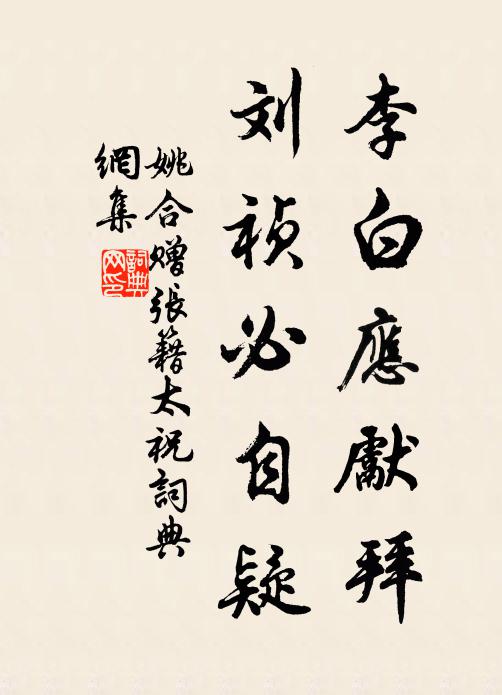 李白應獻拜
刘祯必自疑
姚合赠張籍太祝詞典
網集
詞典
网印